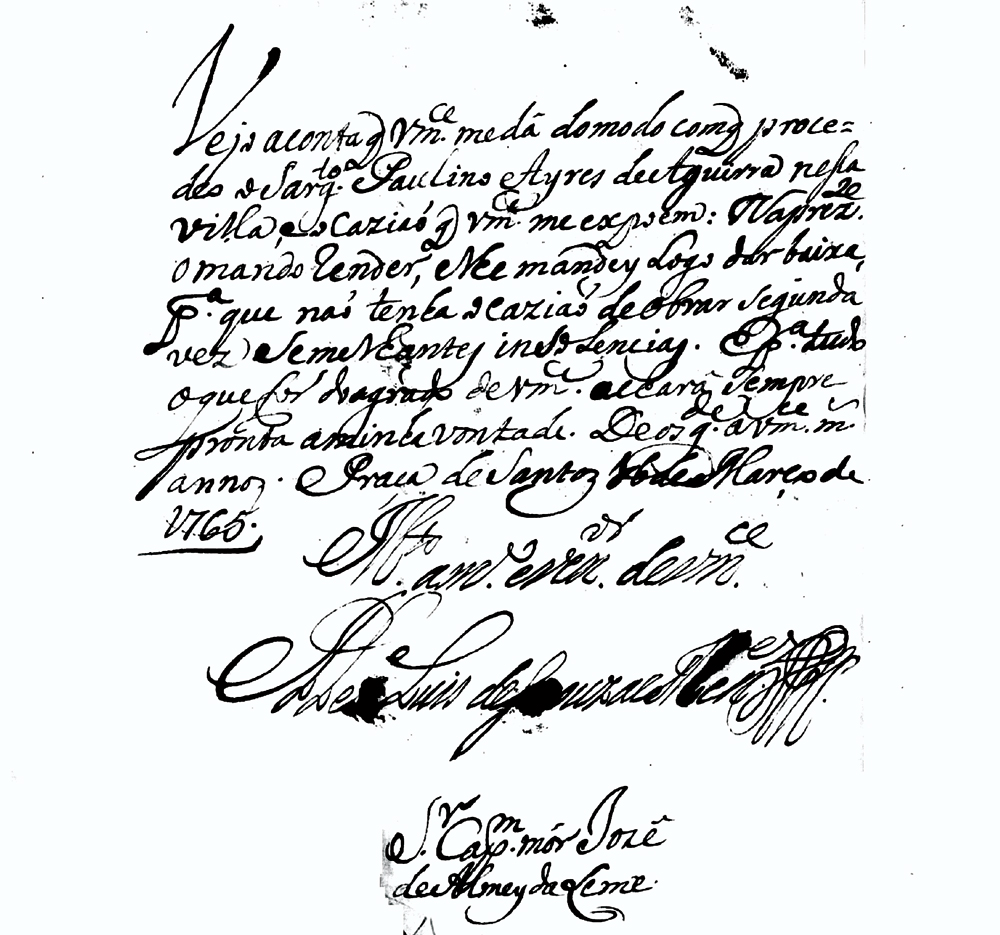 Vejo aconta q̃ Vm.ce medá domodo comq̃ proce=
deo o Sarg.to Paulino Ayres deAguirra nesta
villa, e ocaziaõ q̃ vm.ce me expoem: Naprez.
o mando render, e lhe mandey logo dar baixa,
p.a que naõ tenha ocaziaõ de obrar segunda
vez semelhantes insolencias. E p.a tudo
o que for doagrado de vm.ce achará sempre
pronta aminha vontade. Deos g.de a vm.ce m.s
annos. Praça de Santos de Março de
1765.
M.to am.o e ven.or de vm.ce
D. Luis de Souza
S.r Cap.m mór Jozé
de Almeyda Leme.